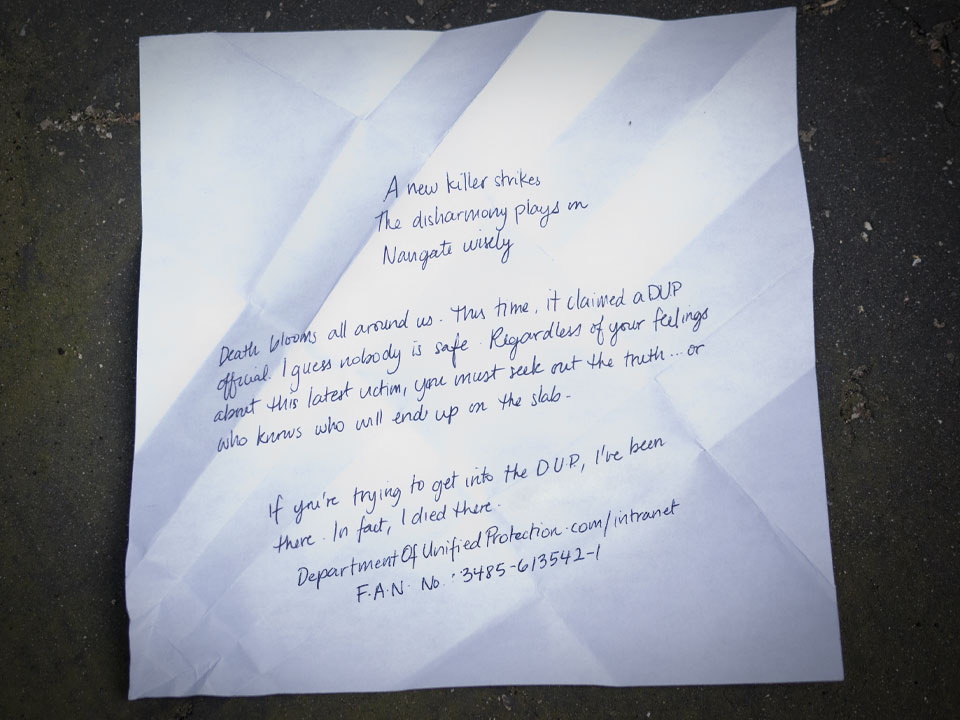 A new killer strikes
The disharmony plays on
Navigate wisely
Death blooms all around us. This time, it claimed a D.U.P.
official. I guess nobody is safe. Regardless of your feelings
about this latest victim, you must seek out the truth... or
who knows who will end up on the slab.
If you're trying to get into the D.U.P., I've been
there. In fact, I died there.
DepartmentOfUnifiedProtection.com/intranet
F.A.N. No.: 3485-613542-1